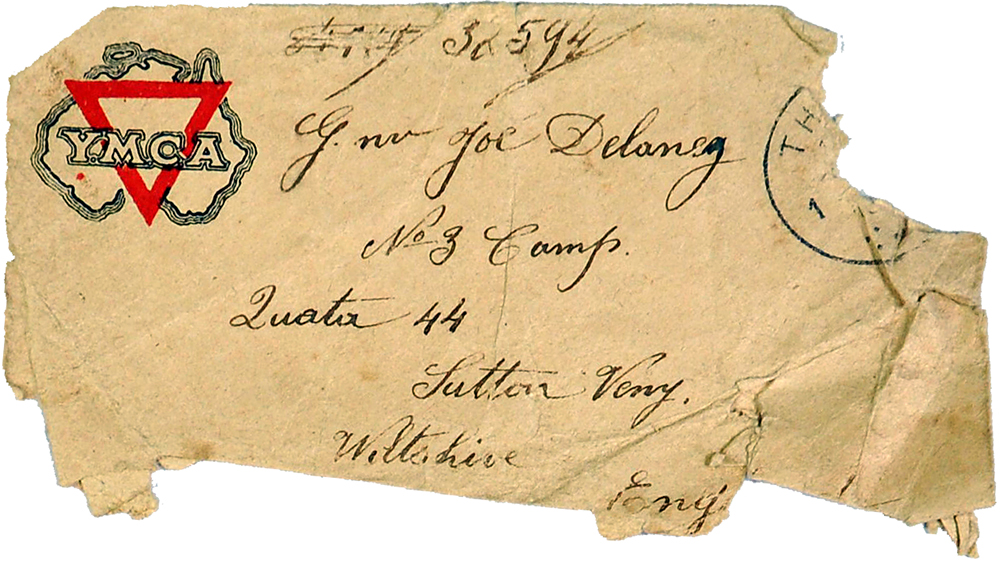 32594
Y.M.C.A
G. nr Joe Delaney
TH
1
No 3 Camp.
Quata 44
Sutton Veny.
Wiltshire
Eng